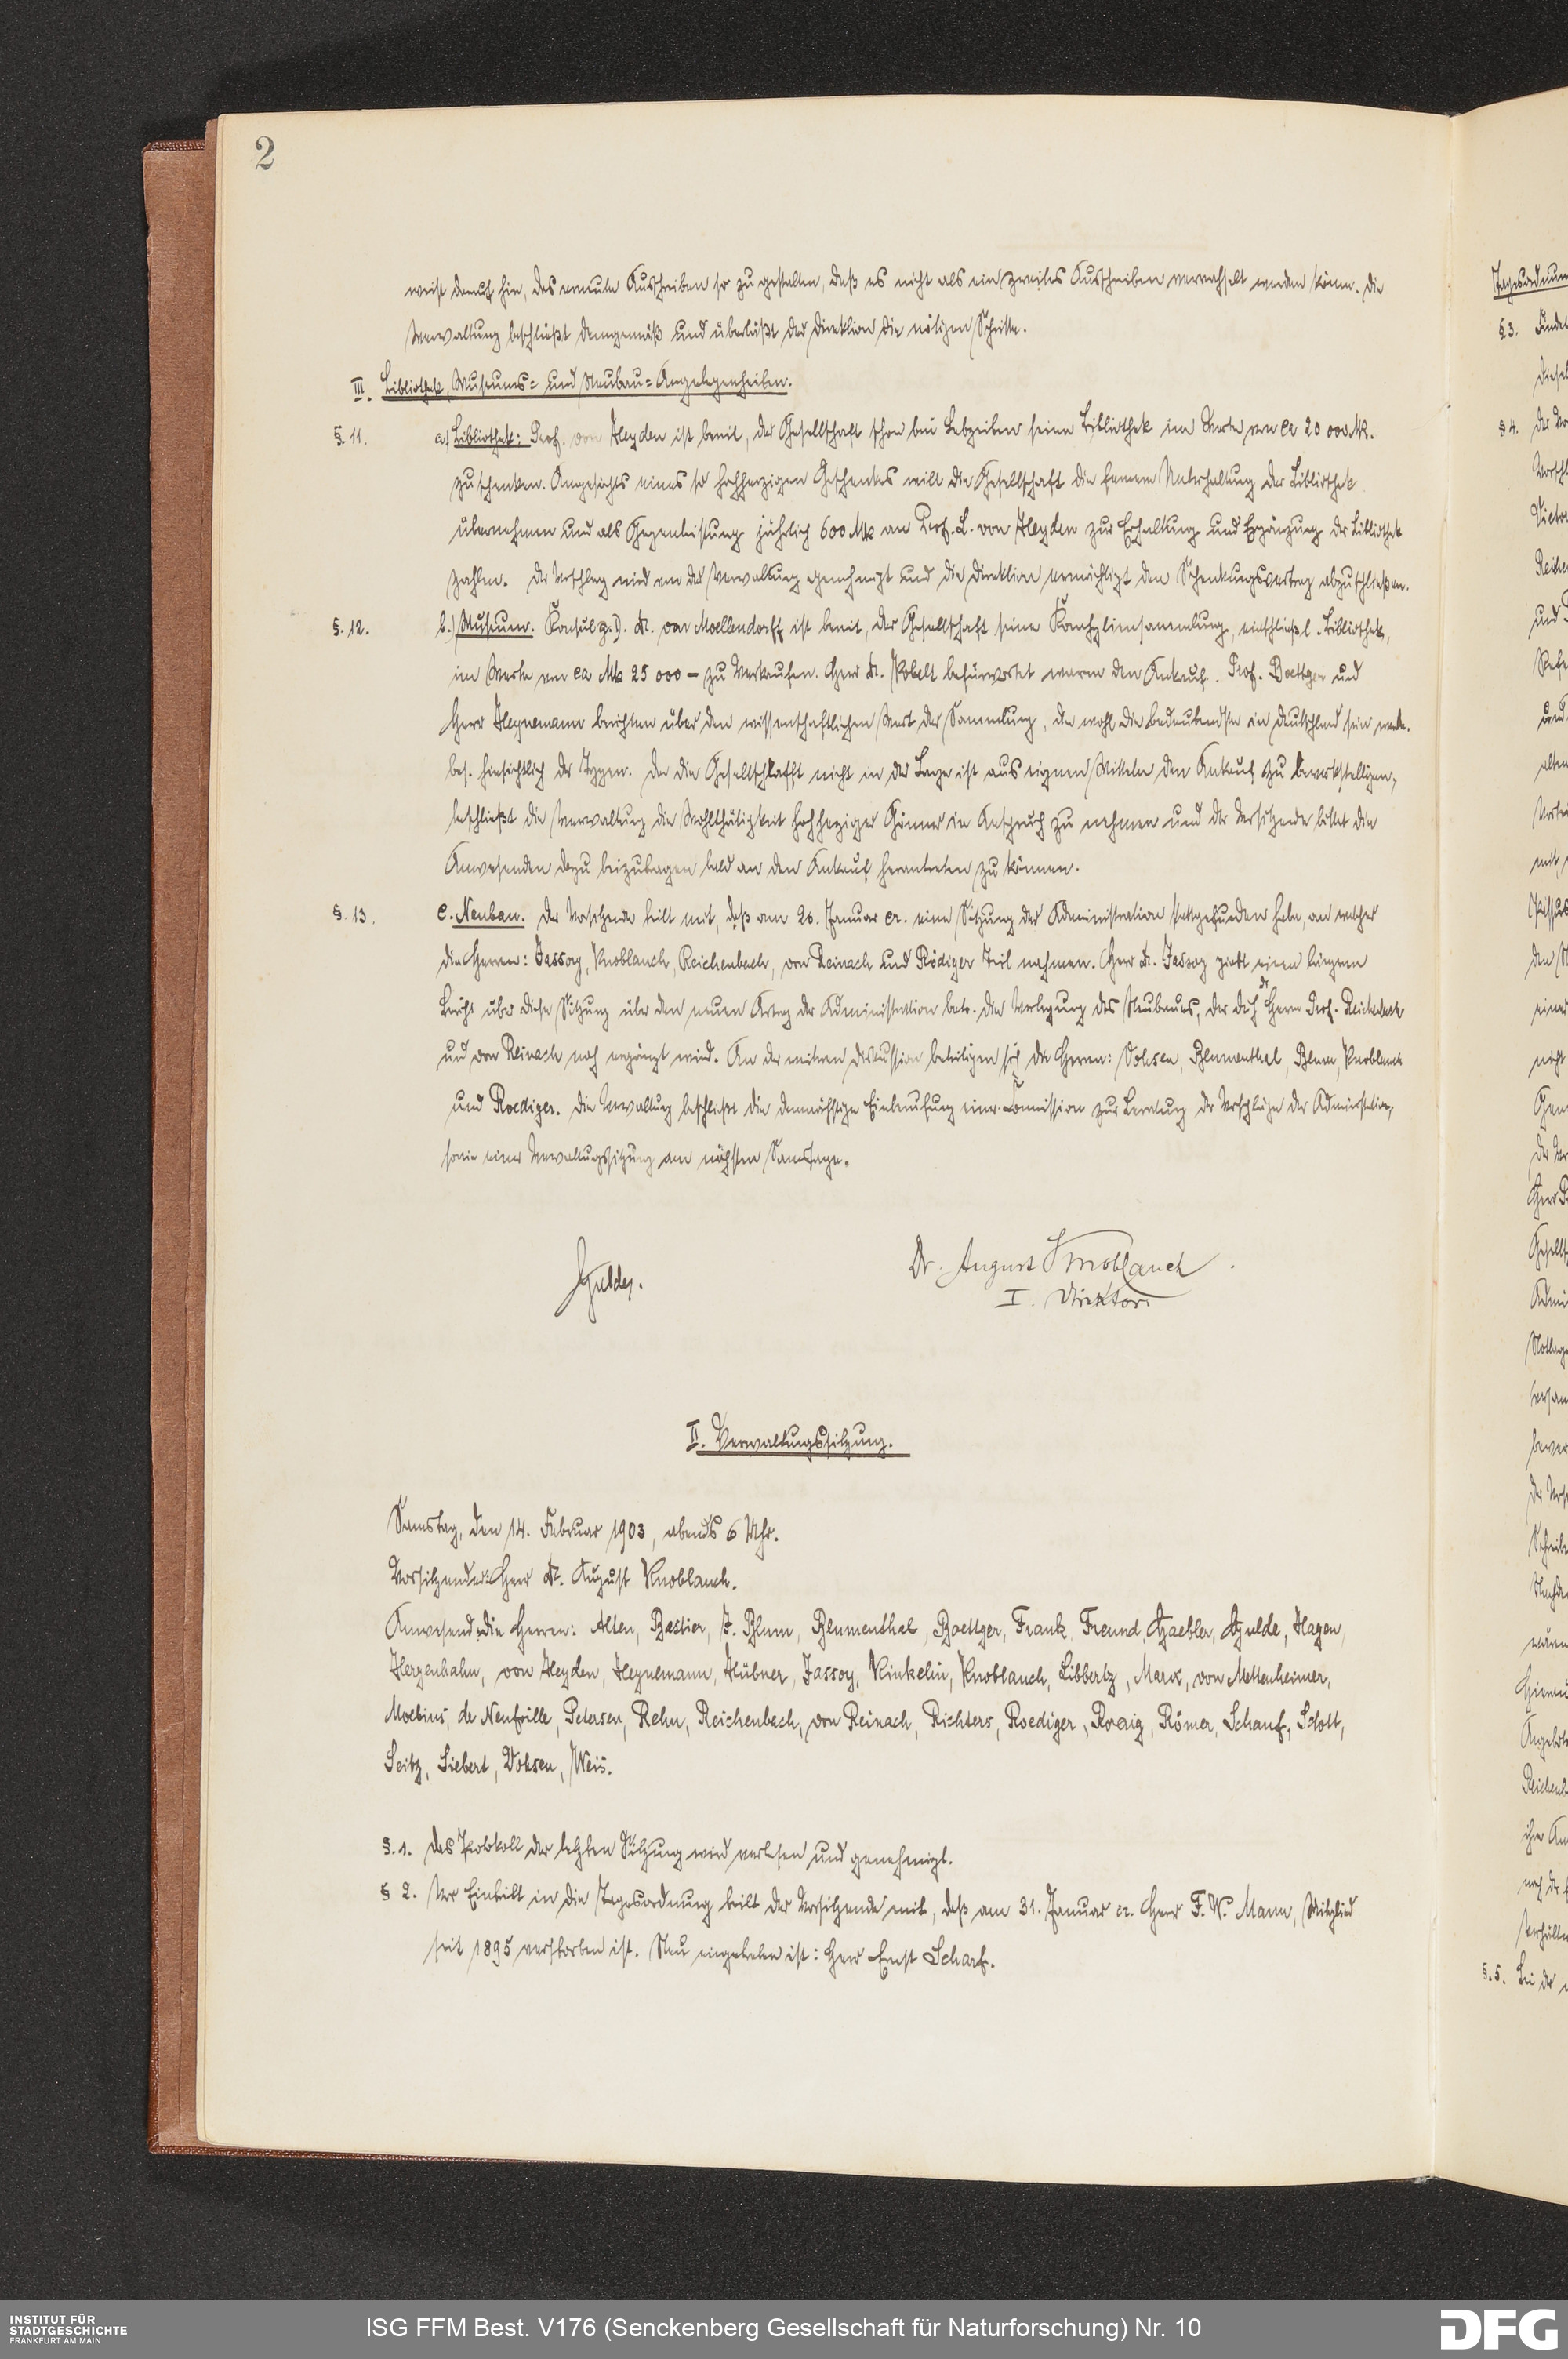 2
weist darauf hin, das erneute Ausschreiben so zu gestalten, daß es nicht als ein zweites Ausschreiben verwechselt werden könne. Die
Verwaltung beschließt demgemäß und überläßt der Direktion die nötigen Schritte.
III. Bibliothek, Museums= und Neubau=Angelegenheiten.
§. 11. a) Bibliothek: Prof. von Heyden ist bereit, der Gesellschaft schon bei Lebzeiten seine Bibliothek im Werte von ca 20 000 Mk.
zu schenken. Angesichts eines so hochherzigen Geschenkes will die Gesellschaft die fernere Unterhaltung der Bibliothek
übernehmen und als Gegenleistung jährlich 600 Mk an Prof. L. von Heyden zur Erhaltung und Ergänzung der Bibliothek
zahlen. Der Vorschlag wird von der Verwaltung genehmigt und die Direktion ermächtigt den Schenkungsvertrag abzuschließen.
§. 12. b.) Museum. Konsul z. D. Dr. von Moellendorff ist bereit, der Gesellschaft seine Konchyliensammlung, einschließl. Bibliothek,
im Werte von ca Mk 25 000 – zu verkaufen. Herr Dr. Kobelt befürwortet warm den Ankauf. Prof. Boettger und
Herr Heynemann berichten über den wissenschaftlichen Wert der Sammlung, die wohl die bedeutendste in Deutschland sein werde.
bes. hinsichtlich der Typen. Da die Gesellschlafft nicht in der Lage ist aus eignen Mitteln den Ankauf zu bewerkstelligen,
beschließt die Verwaltung die Wohlthätigkeit hochherziger Gönner in Anspruch zu nehmen und der Vorsitzende bittet die
Anwesenden dazu beizutragen bald an den Ankauf herantreten zu können.
§. 13. c. Neubau. Der Vorsitzende teilt mit, daß am 26. Januar cr. eine Sitzung der Administration stattgefunden habe, an welcher
die Herren: Jassoy, Knoblauch, Reichenbach, von Reinach und Rödiger Teil nahmen. Herr Dr. Jassoy giebt einen längeren
Bericht über diese Sitzung über den neuen Antrag der Administration betr. der Verlegung des Neubaues, der durch Herrn Prof. Reichenbach
und von Reinach noch ergänzt wird. An der weiteren Diskussion beteiligen sich die Herren: Vohsen, Blumenthal, Blum, Knoblauch
und Roediger. Die Verwaltung beschließt die demnächstige Einberufung einer Commission zur Beratung der Vorschläge der Administration,
sowie einer Verwaltungssitzung am nächsten Samstage.
Gulde.
Dr. August Knoblauch.
I. Direktor.
II. Verwaltungssitzung.
Samstag, den 14. Februar 1903, abends 6 Uhr.
Vorsitzender: Herr Dr. August Knoblauch.
Anwesend: die Herren: Alten, Bastier, J. Blum, Blumenthal, Boettger, Frank, Freund, Gaebler, Gulde, Hagen,
Hergenhahn, von Heyden, Heynemann, Hübner, Jassoy, Kinkelin, Knoblauch, Libbertz, Marx, von Mettenheimer,
Moebius, de Neufville, Petersen, Rehn, Reichenbach, von Reinach, Richters, Roediger, Rörig, Römer, Schauf, Schott,
Seitz, Siebert, Vohsen, Weis.
§. 1. Das Protokoll der letzten Sitzung wird verlesen und genehmigt.
§ 2. Vor Eintritt in die Tagesordnung teilt der Vorsitzende mit, daß am 31. Januar cr. Herr F. W. Mann, Mitglied
seit 1895 verstorben ist. Neu eingetreten ist: Herr Ernst Scharf.
INSTITUT FÜR
STADTGESCHICHTE
FRANKFURT AM MAIN
ISG FFM Best. V176 (Senckenberg Gesellschaft für Naturforschung) Nr. 10
DFG